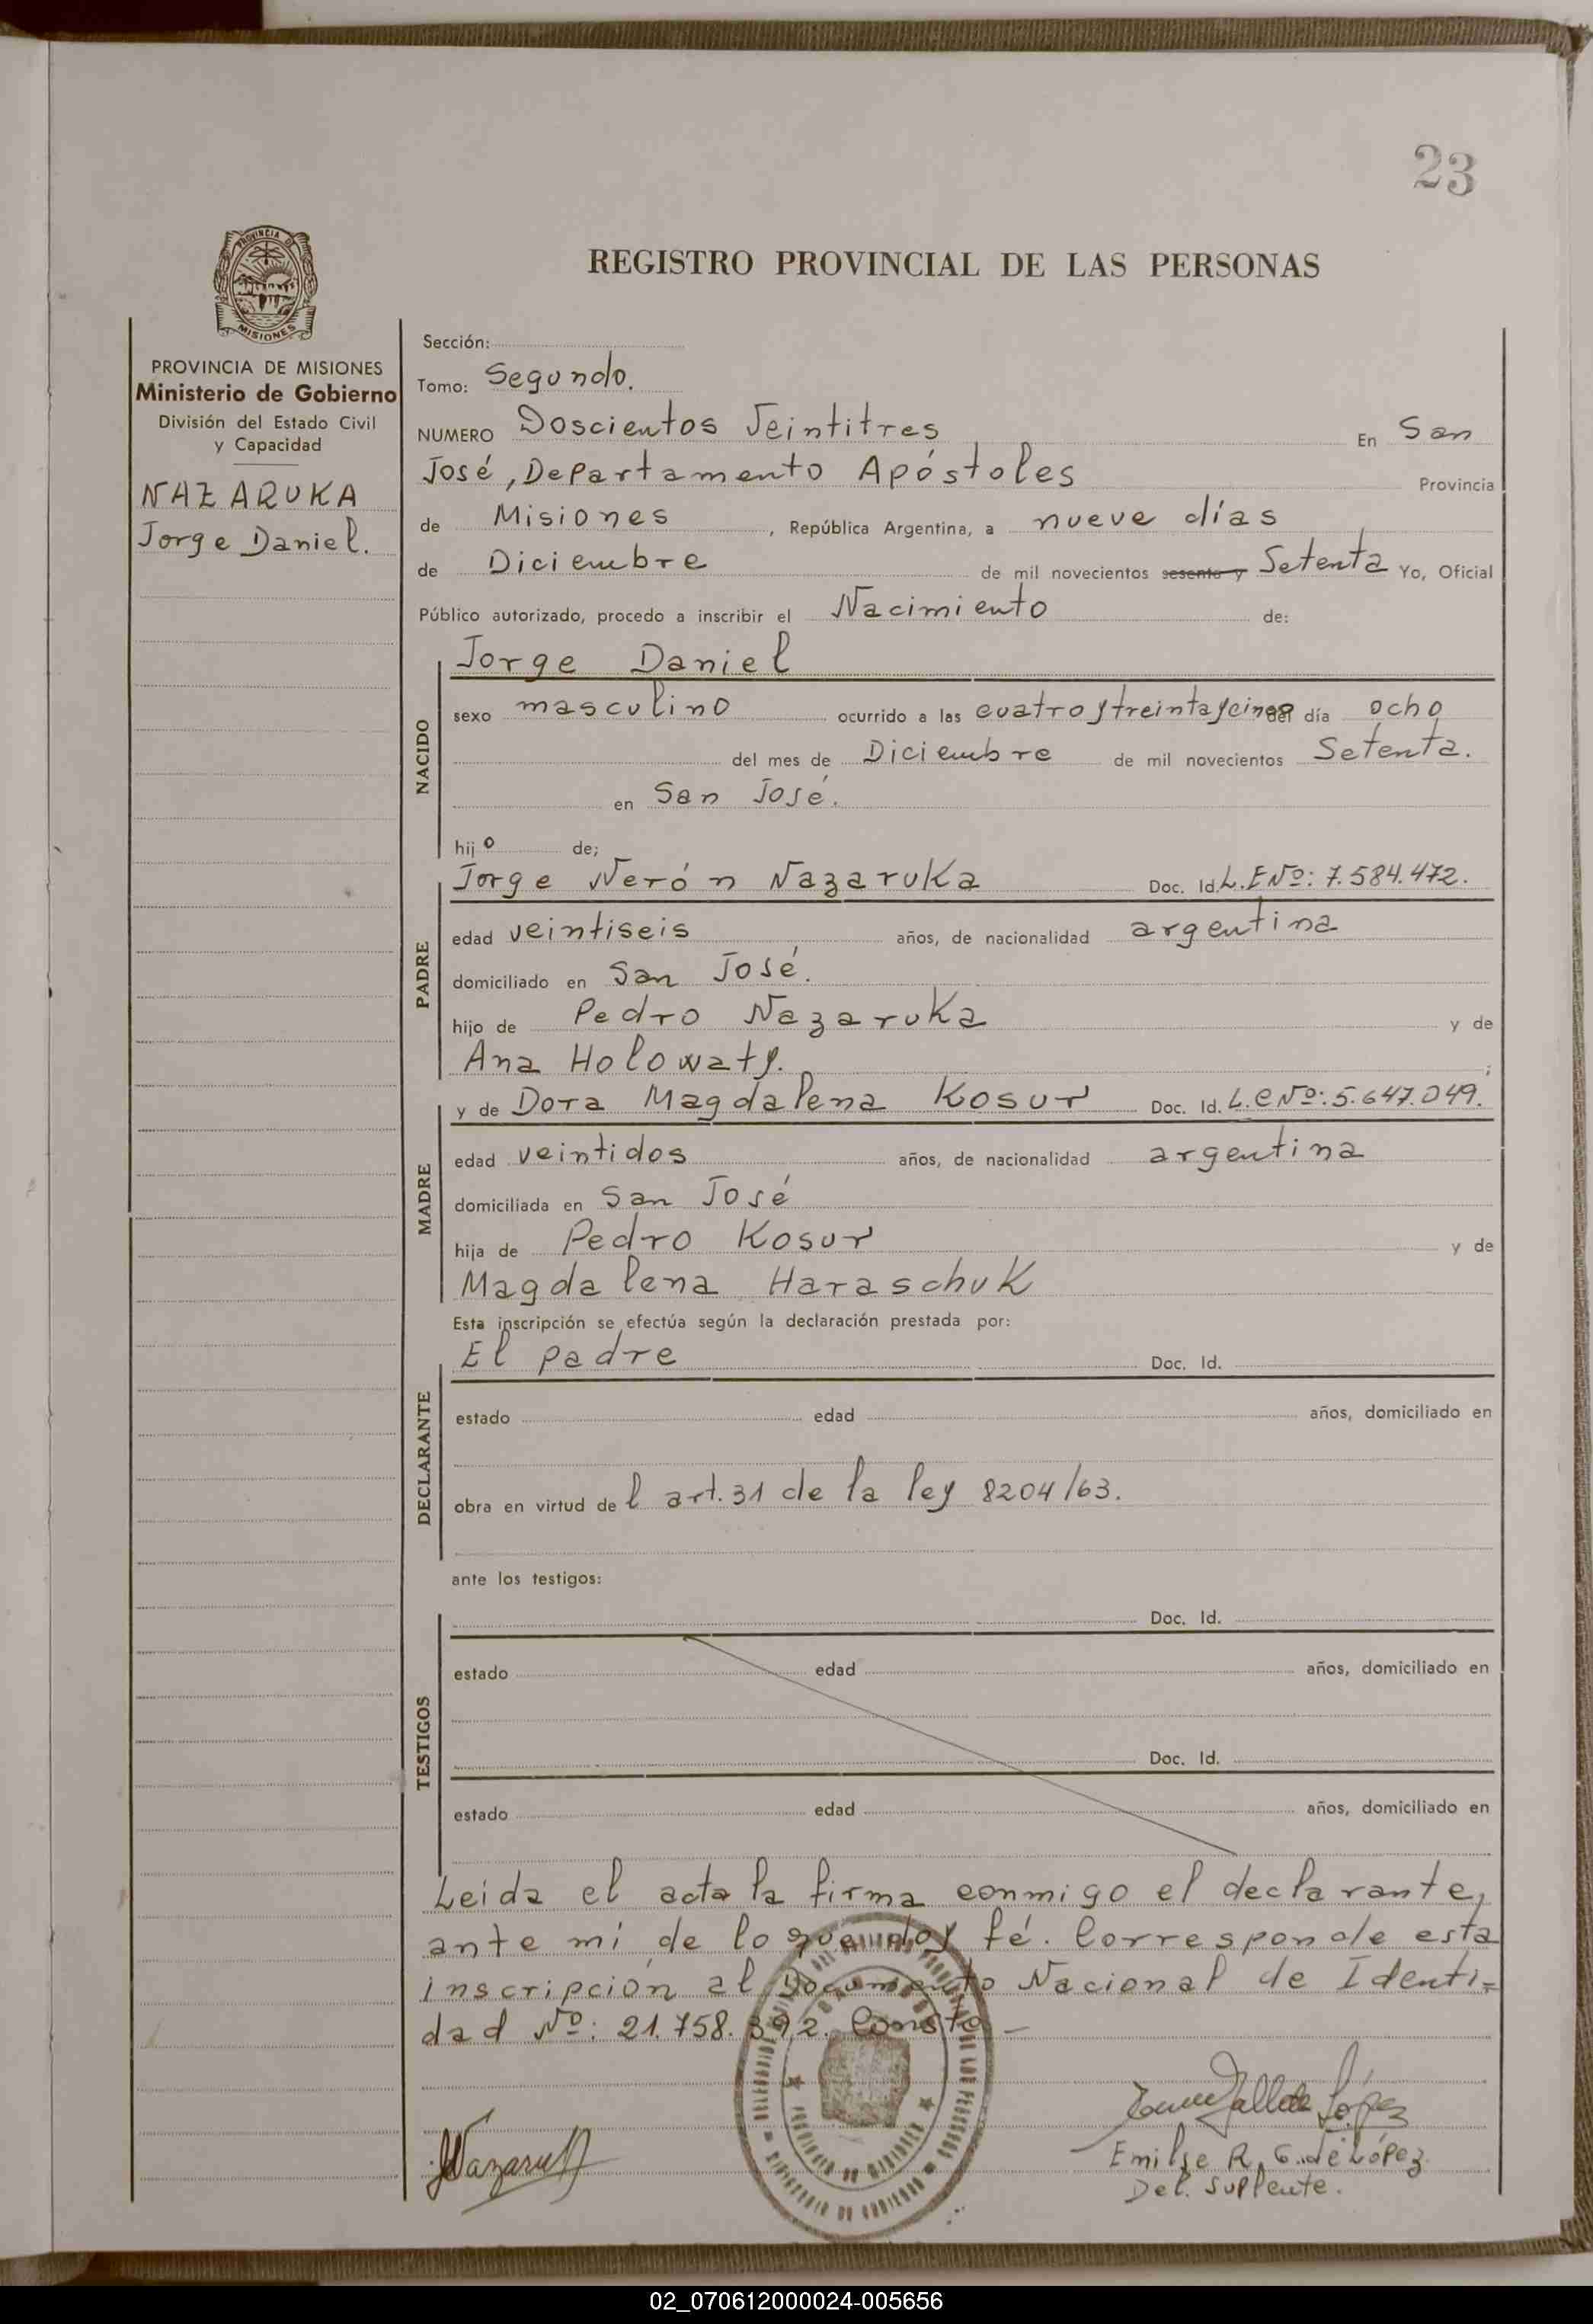 23
REGISTRO PROVINCIAL DE LAS PERSONAS
PROVINCIA DE
MISIONES
PROVINCIA DE MISIONES
Ministerio de Gobierno
División del Estado Civil
y Capacidad
NAZARUKA
Jorge Daniel.
Sección:
Tomo: Segundo.
NUMERO Doscientos Veintitres En San
José, Departamento Apóstoles Provincia
de Misiones, República Argentina, a nueve días
de Diciembre de mil novecientos sesenta y Setenta Yo, Oficial
Público autorizado, procedo a inscribir el Nacimiento de:
NACIDO
Jorge Daniel
sexo masculino ocurrido a las cuatro y treinta y cinco del día ocho
del mes de Diciembre de mil novecientos Setenta.
en San José.
hijo de;
PADRE
Jorge Nerón Nazaruka Doc. Id. L.E Nº: 7.584.472.
edad veintiseis años, de nacionalidad argentina
domiciliado en San José.
hijo de Pedro Nazaruka y de
Ana Holowaty. ;
MADRE
y de Dora Magdalena Kosur Doc. Id. L.C Nº: 5.647.049.
edad veintidos años, de nacionalidad argentina
domiciliada en San José
hija de Pedro Kosur y de
Magdalena Haraschuk
Esta inscripción se efectúa según la declaración prestada por:
DECLARANTE
El padre Doc. Id.
estado edad años, domiciliado en
obra en virtud del art. 31 de la ley 8204/63.
ante los testigos:
TESTIGOS
Doc. Id.
estado edad años, domiciliado en
Doc. Id.
estado edad años, domiciliado en
Leida el acta la firma conmigo el declarante,
ante mi de lo que doy fé. Corresponde esta
inscripción al Documento Nacional de Identi=
dad Nº: 21.758.392. Conste—
Nazaruk
López
Emilse R. G. de López
Del. Suplente.
02_070612000024-005656